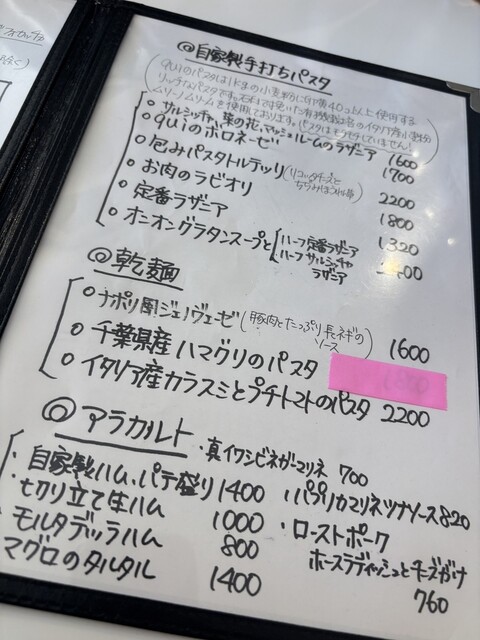 ◎自家製手打ちパスタ
quiのパスタは1kgの小麦粉に卵黄40コ以上使用する
リッチなパスタです。
ムリーノムリームを使用しております。パスタはもちもちしていません!
○ サルシッチャ、菜の花、マッシュルームのラザニア 1600
○ quiのボロネーゼ 1700
○ 包みパスタトルテッリ(リコッタチーズとちぢみほうれん草) 2200
○ お肉のラビオリ 1800
○ 定番ラザニア 1320
○ オニオングラタンスープと ハーフ定番ラザニア
ハーフ サルシッチャ
ラザニア
◎乾麺
○ ナポリ風ジェノヴェーゼ(豚肉とたっぷり長ネギの
ソース) 1600
○ 千葉県産ハマグリのパスタ
○ イタリア産カラスミとプチトマトのパスタ 2200
◎アラカルト
・真イワシビネガーマリネ 700
・自家製ハム、パテ盛り 1400
・パプリカマリネツナソース 820
・切り立て生ハム 1000
・ローストポーク
ホースラディッシュとチーズがけ
760
モルタデッラハム 800
マグロのタルタル 1400